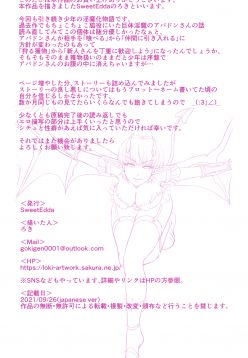 本作品を描きましたSweetEddaのろきといいます。
今回も引き続き少年の淫魔化物語です。
過去作でもちょこちょこ脇役にいた巨体淫魔のアバドンさんの話
読み返してみてこの個体は随分優しかったなぁと。
アバドンさん曰く相手を「喰べる」から「仲間に引き入れる」に
方針が変わったのもあって
「狩る獲物」から「新人さんを丁重に歓迎しよう」になったんでしょうか、
そもそもそのまま獲物扱いのままだと少年は序盤で
アバドンさんのお腹の中に消えちゃいますが…
ページ増やした分、ストーリーも詰め込んでみましたが
ストーリーの良し悪しについてはもうプロットーネーム書いてた頃の
自分を信じるしかなかったです、
数か月同じもの見てたらいくらなんでも飽きてしまうので _(:3」∠)_
少なくとも原稿完了後の読み返しでも
エロ描写の部分は上手くいったと思うので
シチュと性癖があえば気に入っていただければ幸いです。
それではまた機会がありましたら
よろしくお願い致します。
≪発行≫
SweetEdda
≪描いた人≫
ろき
≪Mail≫
gokigen0001@outlook.com
≪HP≫
https://loki-artwork.sakura.ne.jp/
※SNSなどもやっています。詳細やリンクはHPの方参照。
≪記載日≫
2021/09/26(japanese ver)
作品の無断・無許可による転載・複製・改変・頒布など行うことを禁じます。